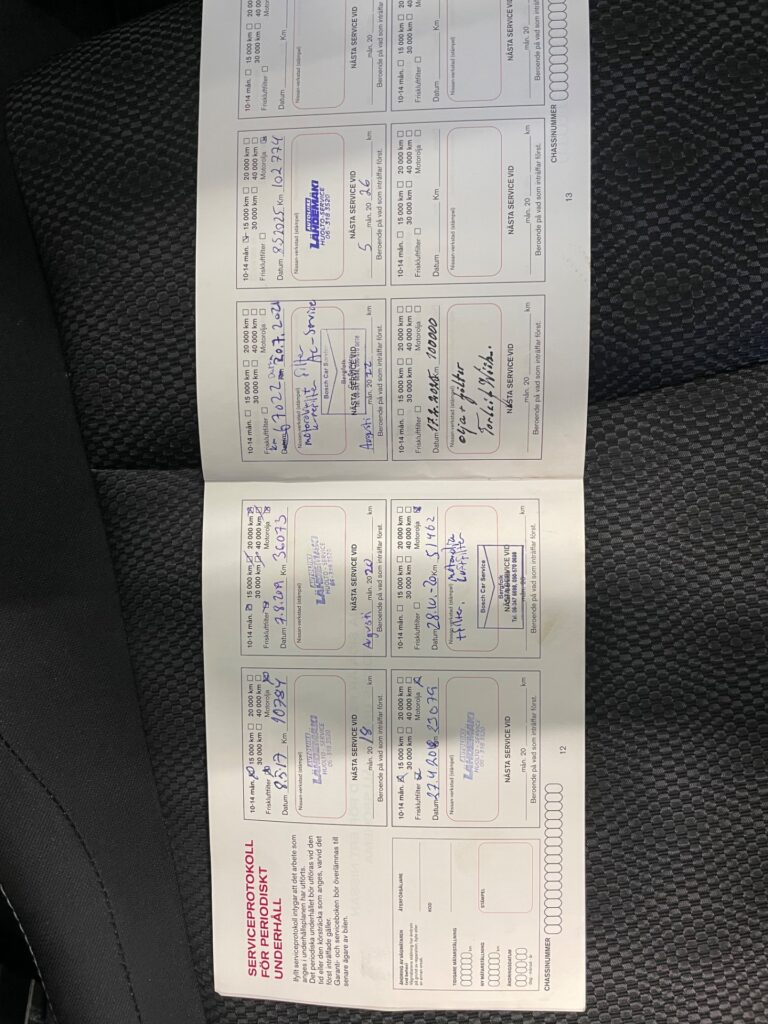 SERVICEPROTOKOLL
FÖR PERIODISKT
UNDERHÅLL
Ifyllt serviceprotokoll intygar att det arbete som
anges i underhållsplanen har utförts.
Det periodiska underhållet bör utföras vid den
tid eller den körsträcka som anges, varvid det
först inträffade gäller.
Garanti- och serviceboken bör överlämnas till
senare ägare av bilen.
ÅTERFÖRSÄLJARE
KOD
TIDIGARE MÄTARSTÄLLNING
km
NY MÄTARSTÄLLNING
km
STÄMPEL
ÄNDRINGSDATUM
CHASSINUMMER
10-14 mån. 15 000 km 20 000 km
30 000 km 40 000 km
Friskluftfilter Motorolja
Datum 8.5.17 Km 10784
Nissan-verkstad (stämpel)
LÄHDEMÄKI
HUOLTO - SERVICE
06 318 3520
NÄSTA SERVICE VID
mån. 20 18 km
Beroende på vad som inträffar först.
10-14 mån. 15 000 km 20 000 km
30 000 km 40 000 km
Friskluftfilter Motorolja
Datum 27.4.2018 Km 21079
Nissan-verkstad (stämpel)
LÄHDEMÄKI
HUOLTO - SERVICE
06 318 3520
NÄSTA SERVICE VID
mån. 20 km
Beroende på vad som inträffar först.
10-14 mån. 15 000 km 20 000 km
30 000 km 40 000 km
Friskluftfilter Motorolja
Datum 7.8.2019 Km 36073
Nissan-verkstad (stämpel)
LÄHDEMÄKI
HUOLTO - SERVICE
NÄSTA SERVICE VID
Augusti mån. 20 20 km
Beroende på vad som inträffar först.
10-14 mån. 15 000 km 20 000 km
30 000 km 40 000 km
Friskluftfilter Motorolja
Datum 28.10.-20 Km 51462
Nissan-verkstad (stämpel) Motorolja
+filter, Luftfilter
Bosch Car Service
Bergfolk
NÄSTA SERVICE VID
mån. 20 km
Beroende på vad som inträffar först.
12
10-14 mån. 15 000 km 20 000 km
30 000 km 40 000 km
Friskluftfilter Motorolja
km 67022 Datum 20.7.2021
Nissan-verkstad (stämpel)
filter
AC-Service
Bosch Car Service
Bergfolk
NÄSTA SERVICE VID
Augusti mån. 20 22 km
Beroende på vad som inträffar först.
10-14 mån. 15 000 km 20 000 km
30 000 km 40 000 km
Friskluftfilter Motorolja
Datum Km 100000
Nissan-verkstad (stämpel)
olja + filter
NÄSTA SERVICE VID
mån. 20 km
Beroende på vad som inträffar först.
10-14 mån. 15 000 km 20 000 km
30 000 km 40 000 km
Friskluftfilter Motorolja
Datum 8.5.2025 Km 102774
Nissan-verkstad (stämpel)
LÄHDEMÄKI
HUOLTO-SERVICE
06 318 3520
NÄSTA SERVICE VID
5 mån. 20 26 km
Beroende på vad som inträffar först.
10-14 mån. 15 000 km 20 000 km
30 000 km 40 000 km
Friskluftfilter Motorolja
Datum Km
Nissan-verkstad (stämpel)
NÄSTA SERVICE VID
mån. 20 km
Beroende på vad som inträffar först.
13
10-14 mån. 15 000 km 20 000 km
30 000 km 40 000 km
Friskluftfilter
Datum Km
Nissan-verkstad (stämpel)
NÄSTA SERVICE VID
mån. 20
Beroende på vad som inträffar
10-14 mån. 15 000 km
30 000 km
Friskluftfilter
Datum Km
Nissan-verkstad (stämpel)
NÄSTA SERVICE VID
mån. 20
Beroende på vad som inträffar
CHASSINUMMER